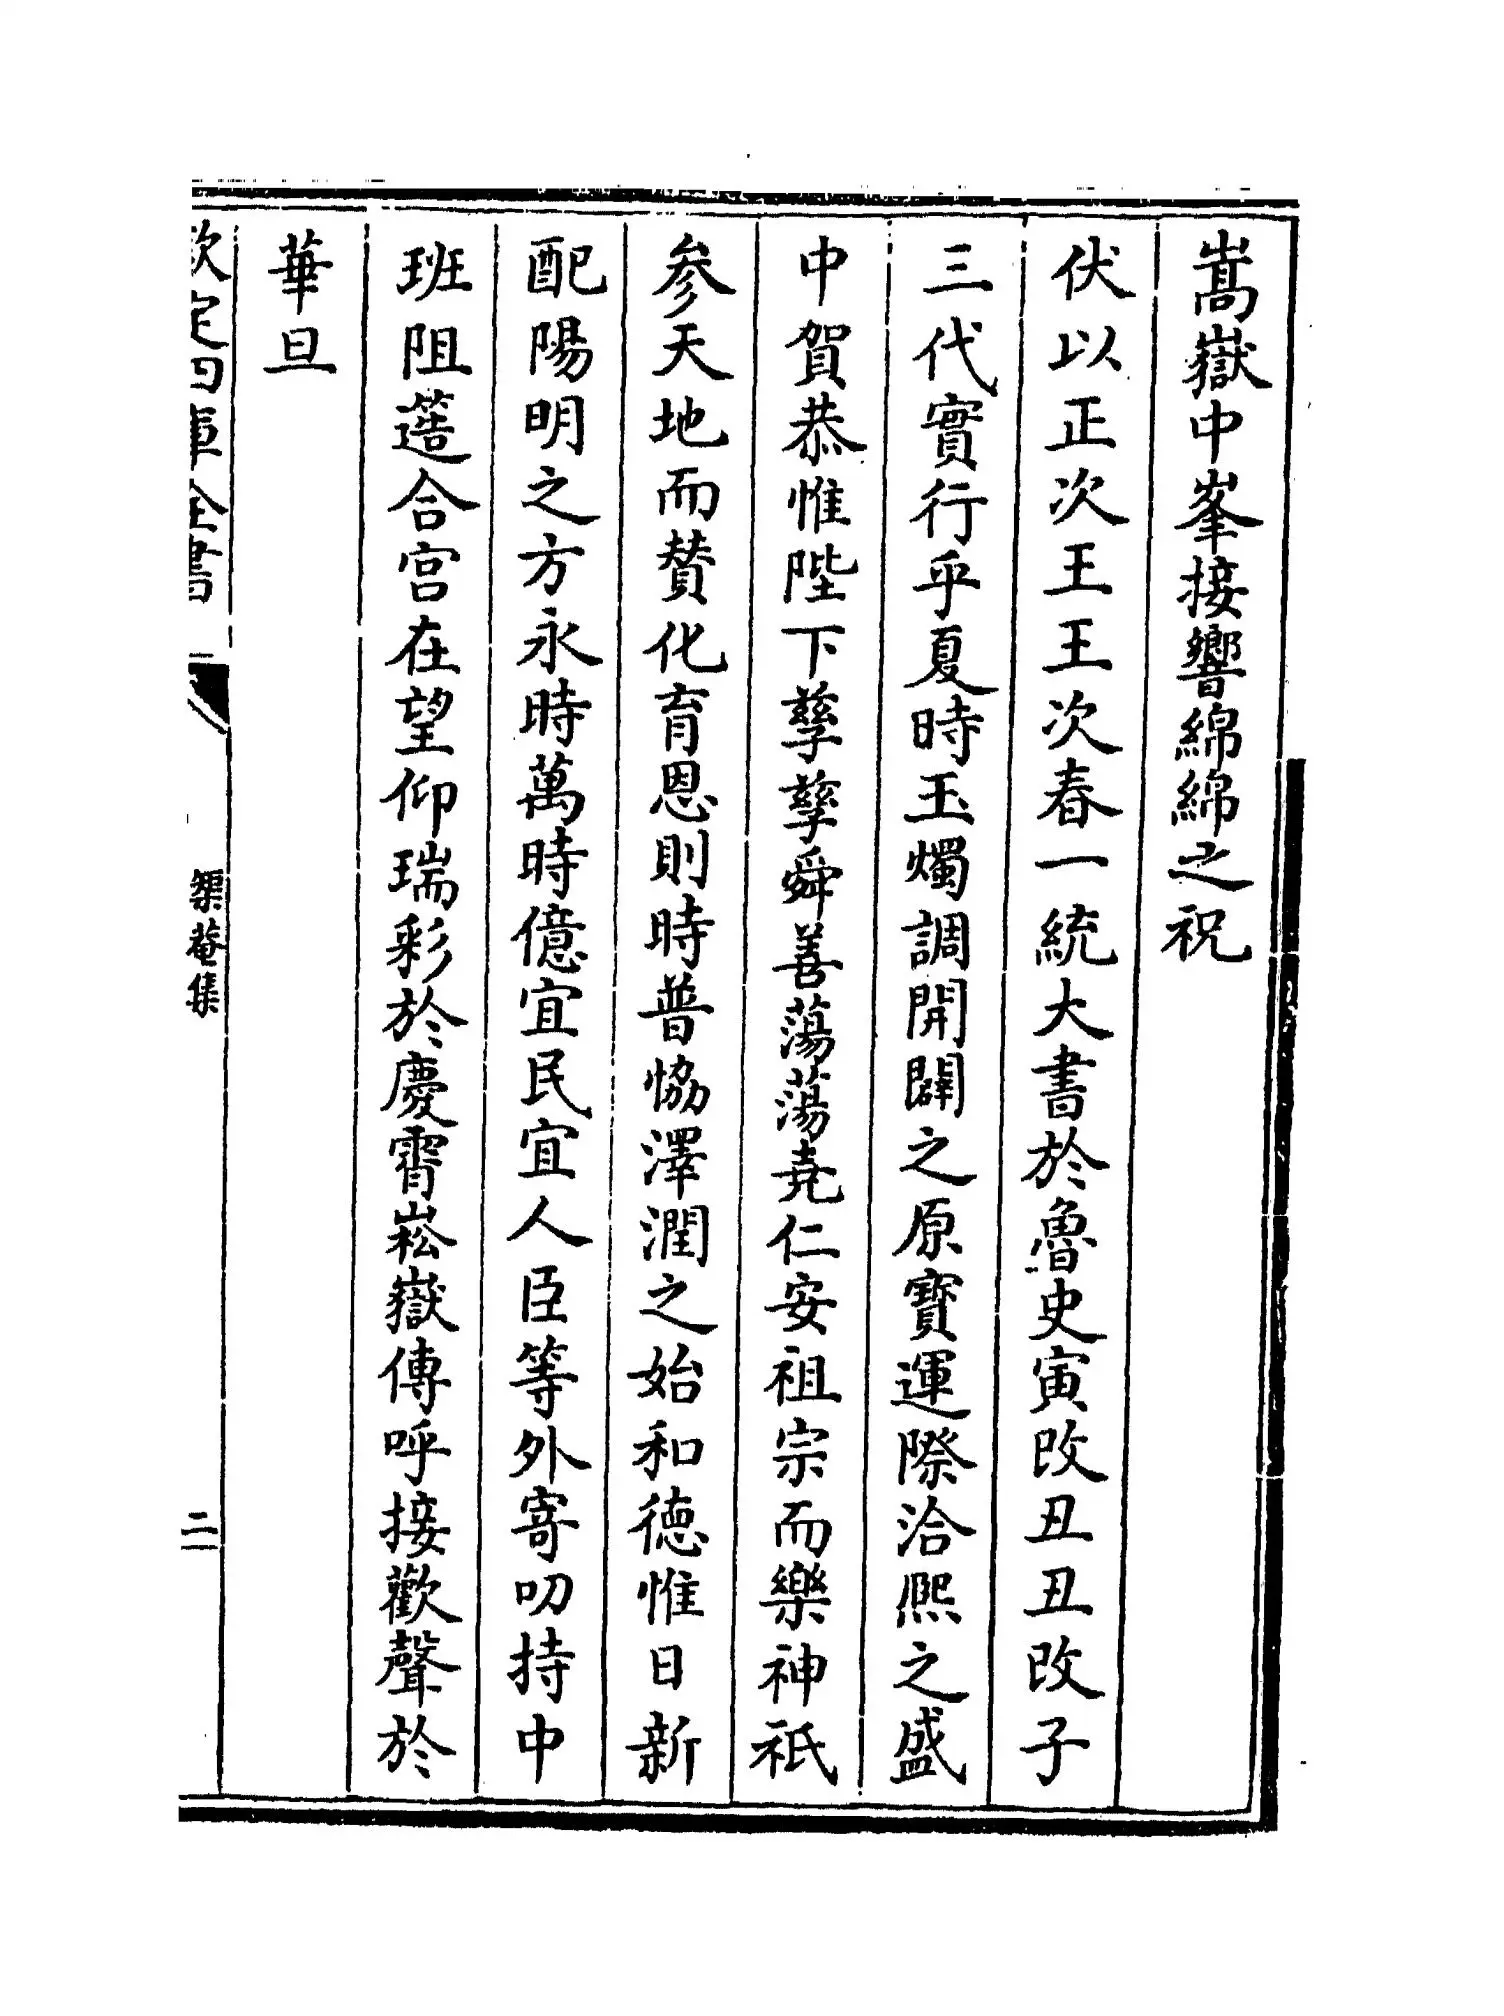 嵩嶽中峯接響綿綿之祝
伏以正次王王次春一統大書於魯史寅改丑丑改子
三代實行乎夏時玉燭調開闢之原寶運際洽熙之盛
中賀恭惟陛下孳孳舜善蕩蕩堯仁安祖宗而樂神祇
參天地而賛化育恩則時普恊澤潤之始和德惟日新
配陽明之方永時萬時億宜民宜人臣等外寄叨持中
班阻簉合宫在望仰瑞彩於慶霄崧嶽傳呼接歡聲於
華旦
欽定四庫全書
榘菴集
二